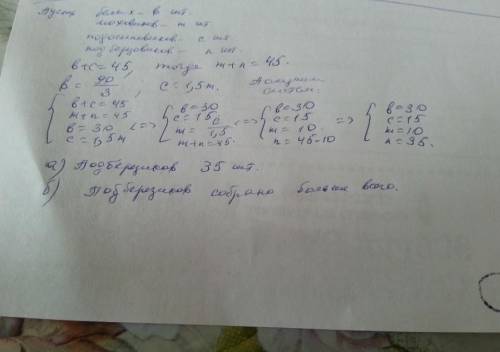 Пусть белых - в шт.
моховиков - m шт.
подосиновиков - c шт
подберёзовиков - n шт.
в+c=45, тогда m+n=45.
в = 90/3, c=1,5m. Получим систем:
{ в+c=45 m+n=45 в=30 c=1,5m <=> { в=30 c=15 m=c/1,5 m+n=45 <=> { в=30 c=15 m=10 n=45-10 => { в=30 c=15 m=10 n=35.
а) Подберезиков 35 шт.
б) Подберезиков собрано больше всего.